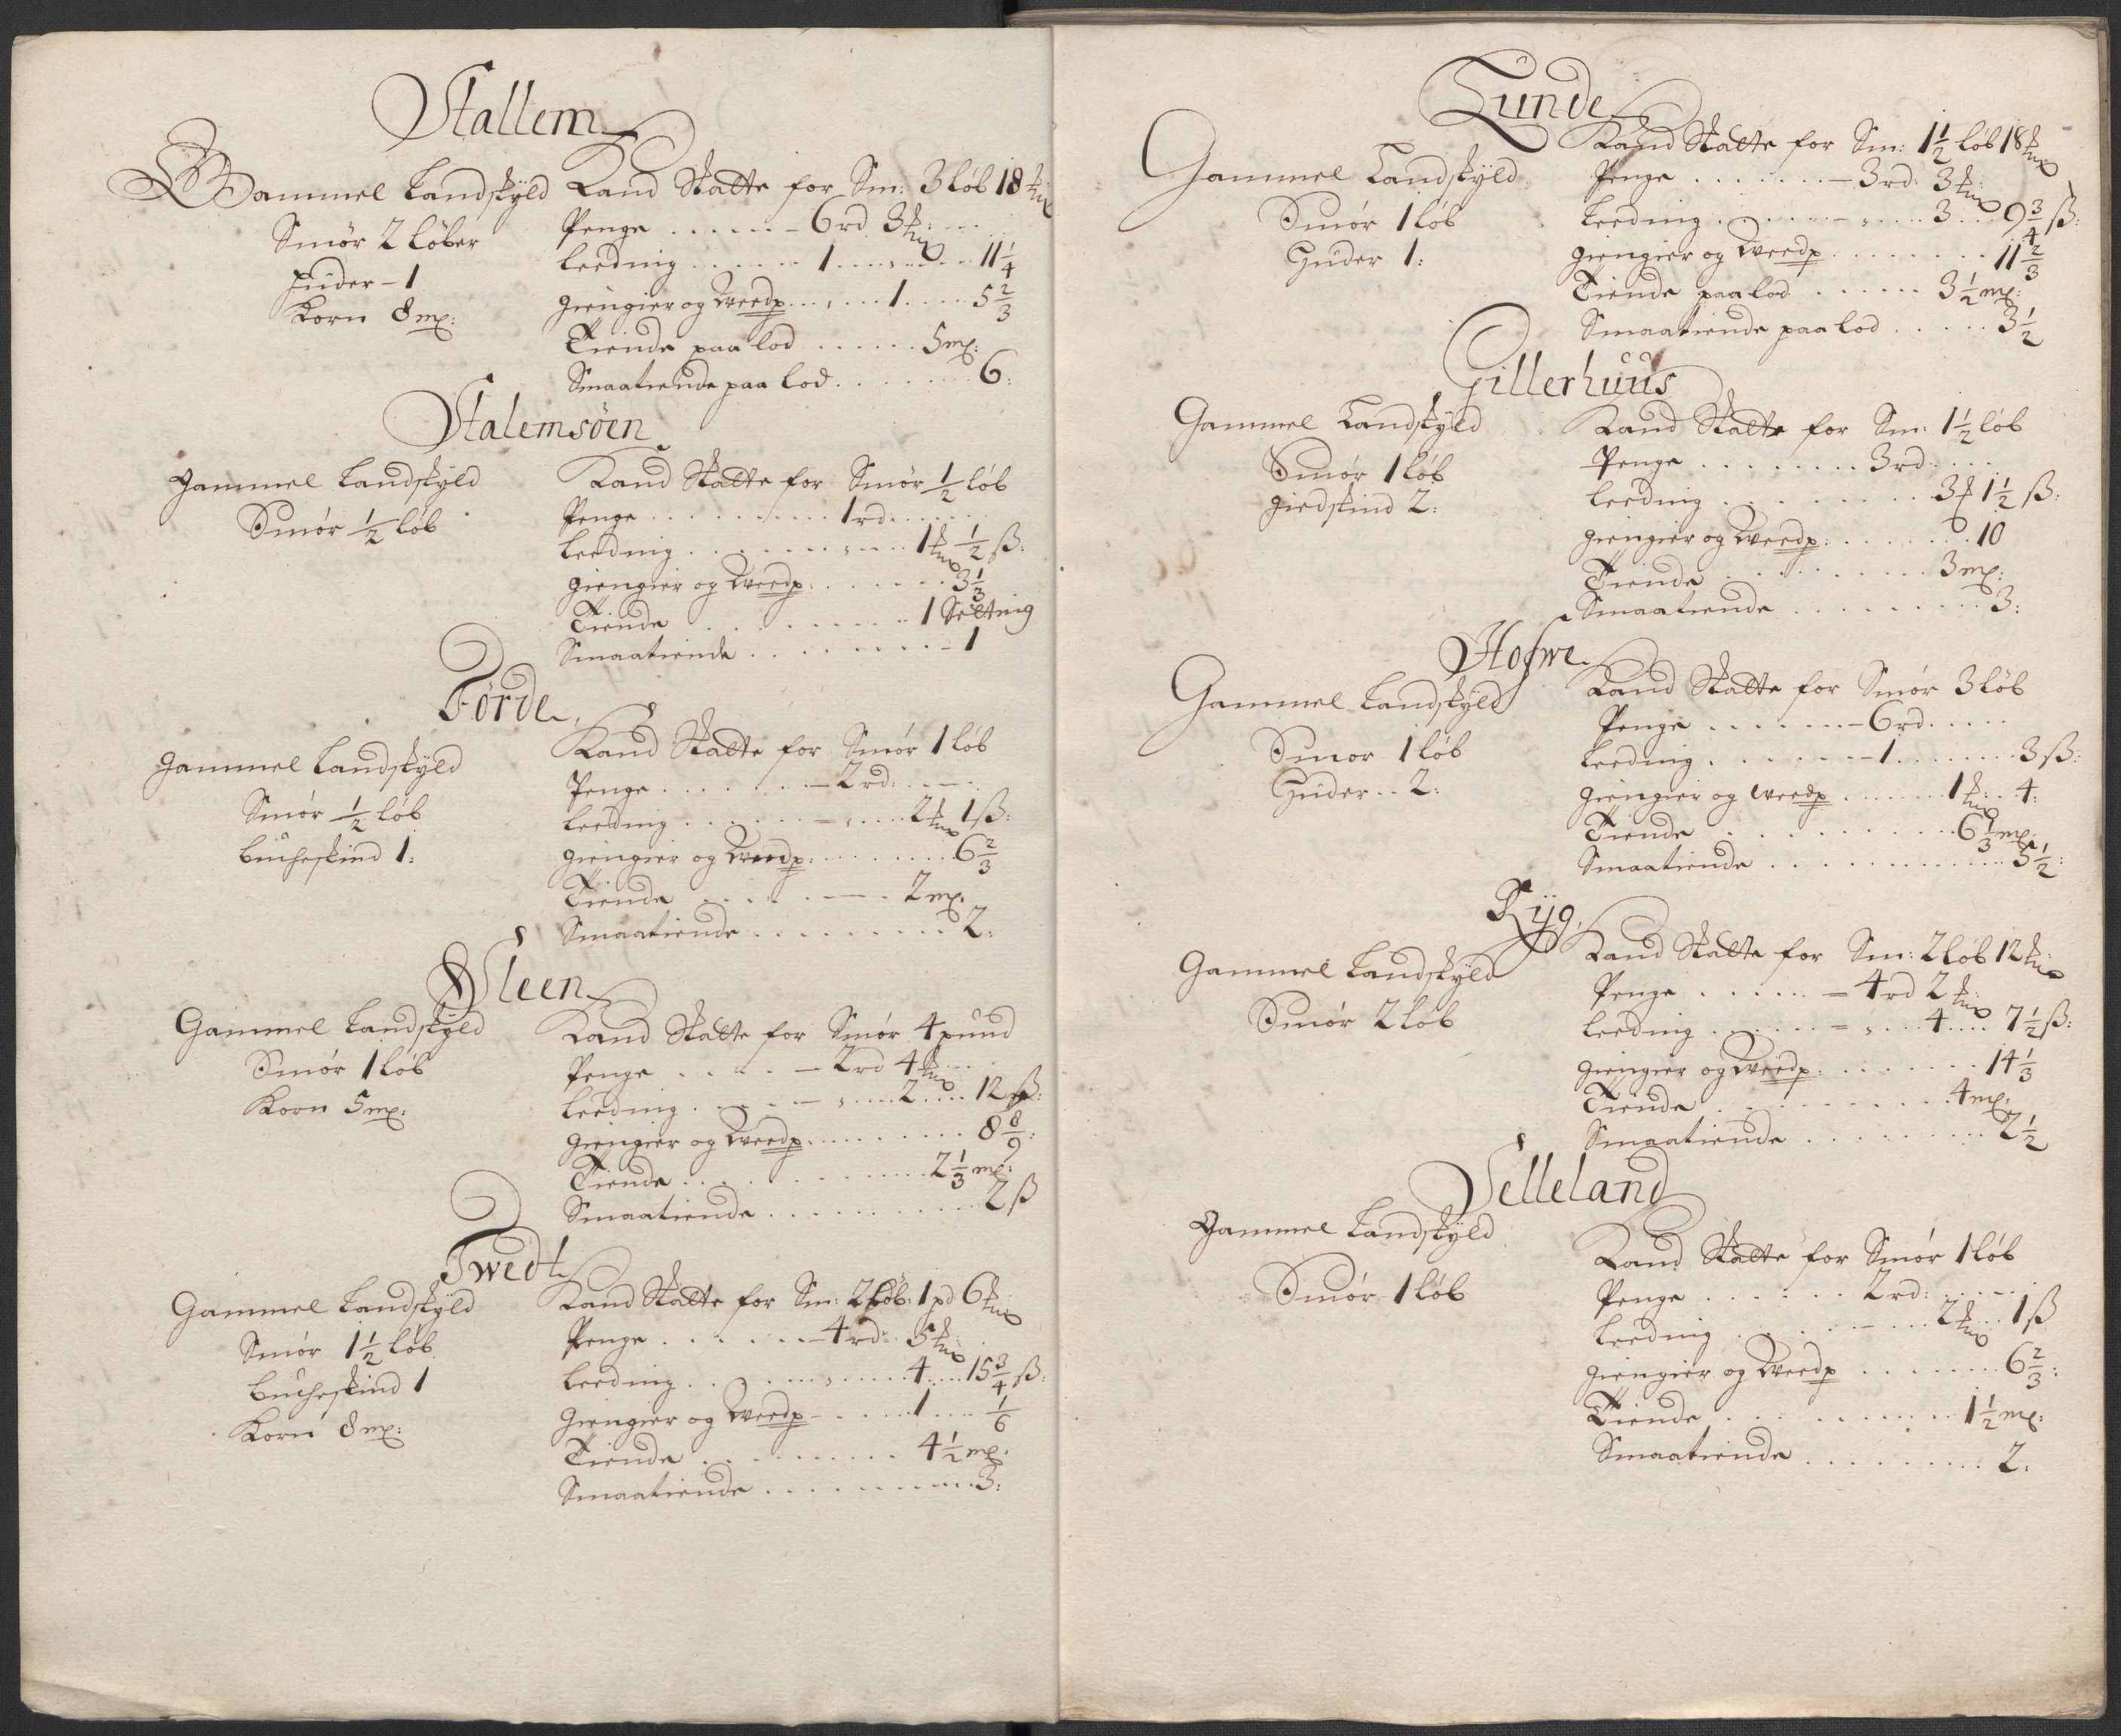 Stallem
Gammel Landskÿld
Smør 2 løber
Huder - 1
Korn 8 mp:
Kand Skatte for Sm: 3 løb 18 mk
Penge . . . . . . - 6 rd 3 mk: . . . .
Leeding . . . . . . 1 . . . . . . . 11 1/4
giengier og Dreedp . . . . 1 . . . . 5 2/3
Tiende paa lod . . . . . . 5 mp:
Smaatiende paa Lod . . . . . . . 6:
Stalemsöen
Gammel Landskÿld
Smør 1/2 løb
Kand Skatte for Smør 1/2 løb
Penge . . . . . . . . . 1 rd . . . . .
Leeding . . . . . . . . . . 1 mk 1/2 ß:
giengier og Dreedp . . . . . . . 3 1/3
Tiende . . . . . . . . . . 1 Setting
Smaatiende . . . . . . . . - 1
Förde
Gammel Landskÿld
Smør 1/2 løb
Bucheskind 1:
Kand Skatte for Smør 1 løb
Penge . . . . . . - 2 rd: . . . .
Leeding . . . . . . - . . . . 2 mk 1 ß:
giengier og Dreedp . . . . . . . . 6 2/3
Tiende . . . . . . . . 2 mp:
Smaatiende . . . . . . . . . 2:
Steen
Gammel Landskÿld
Smør 1 løb
Korn 5 mp:
Kand Skatte for Smør 4 pund
Penge . . . . - 2 rd 4 mk . . .
Leeding . . . . . - . . . . 2 . . . . 12 ß:
giengier og Dreedp . . . . . . . . . 8 8/9:
Tiende . . . . . . . . . . . 2 1/3 mp:
Smaatiende . . . . . . . . . . . 2 ß
Twedt
Gammel Landskÿld
Smør 1 1/2 løb
Bucheskind 1
Korn 8 mp:
Kand Skatte for Sm: 2 løb: 1 pd 6 mk
Penge . . . . . . - 4 rd: 5 mk: .
Leeding . . . . . . . . . . . 4 . . . . 15 3/4 ß:
Giengier og Dreedp - . . . . 1 . . . . 1/6
Tiende . . . . . . . . . . 4 1/2 mp:
Smaatiende . . . . . . . . . . . 3:
Lunde
Gammel Landskÿld
Smør 1 løb
Huder 1:
Kand Skatte for Sm: 1 1/2 løb 18 mk
Penge . . . . . . . - 3 rd: 3 mk:
Leeding . . . . . . - . . . . 3 . . . 9 3/4 ß:
giengier og Dreedp . . . . . . . . 11 2/3
Tiende paa lod . . . . . . 3 1/2 mp:
Smaatiende paa Lod . . . . . 3 1/2
Gillerhuus
Gammel Landskÿld
Smør 1 løb
giedskind 2:
Kand Skatte for Sm: 1 1/2 løb
Penge . . . . . . . . 3 rd . . . .
Leeding . . . . . . . . . 3 mk 1 1/2 ß:
giengier og Dreedp: . . . . . . . 10
Tiende . . . . . . . . . . 3 mp:
Smaatiende . . . . . . . . . 3:
Hofwe
Gammel Landskÿld
Smør 1 løb
Huder . . 2:
Kand Skatte for Smør 3 løb
Penge . . . . . . - 6 rd . . . . .
Leeding . . . . . . - 1 . . . . . . . . 3 ß:
giengier og Dreedp . . . . . . 1 mk: . . 4:
Tiende . . . . . . . . . . . 6 1/3 mp:
Smaatiende . . . . . . . . . . . . 5 1/2:
Ryg
Gammel Landskÿld
Smør 2 løb
Kand Skatte for Sm: 2 løb 12 mk:
Penge . . . . . = 4 rd 2 mk:
Leeding . . . . . . = . . . 4 . . . . 7 1/2 ß:
giengier og Dreedp: . . . . . . . 14 1/3
Tiende . . . . . . . . . . 4 mp:
Smaatiende . . . . . . . . . 2 1/2
Selleland
Gammel Landskÿld
Smør 1 løb
Kand Skatte for Smør 1 løb
Penge . . . . . . 2 rd: . . . . .
Leeding . . . . . . - . . . 2 mk . . . 1 ß
giengier og Dreedp . . . . . . . 6 2/3:
Tiende . . . . . . . . . . . 1 1/2 mp:
Smaatiende . . . . . . . . . 2.